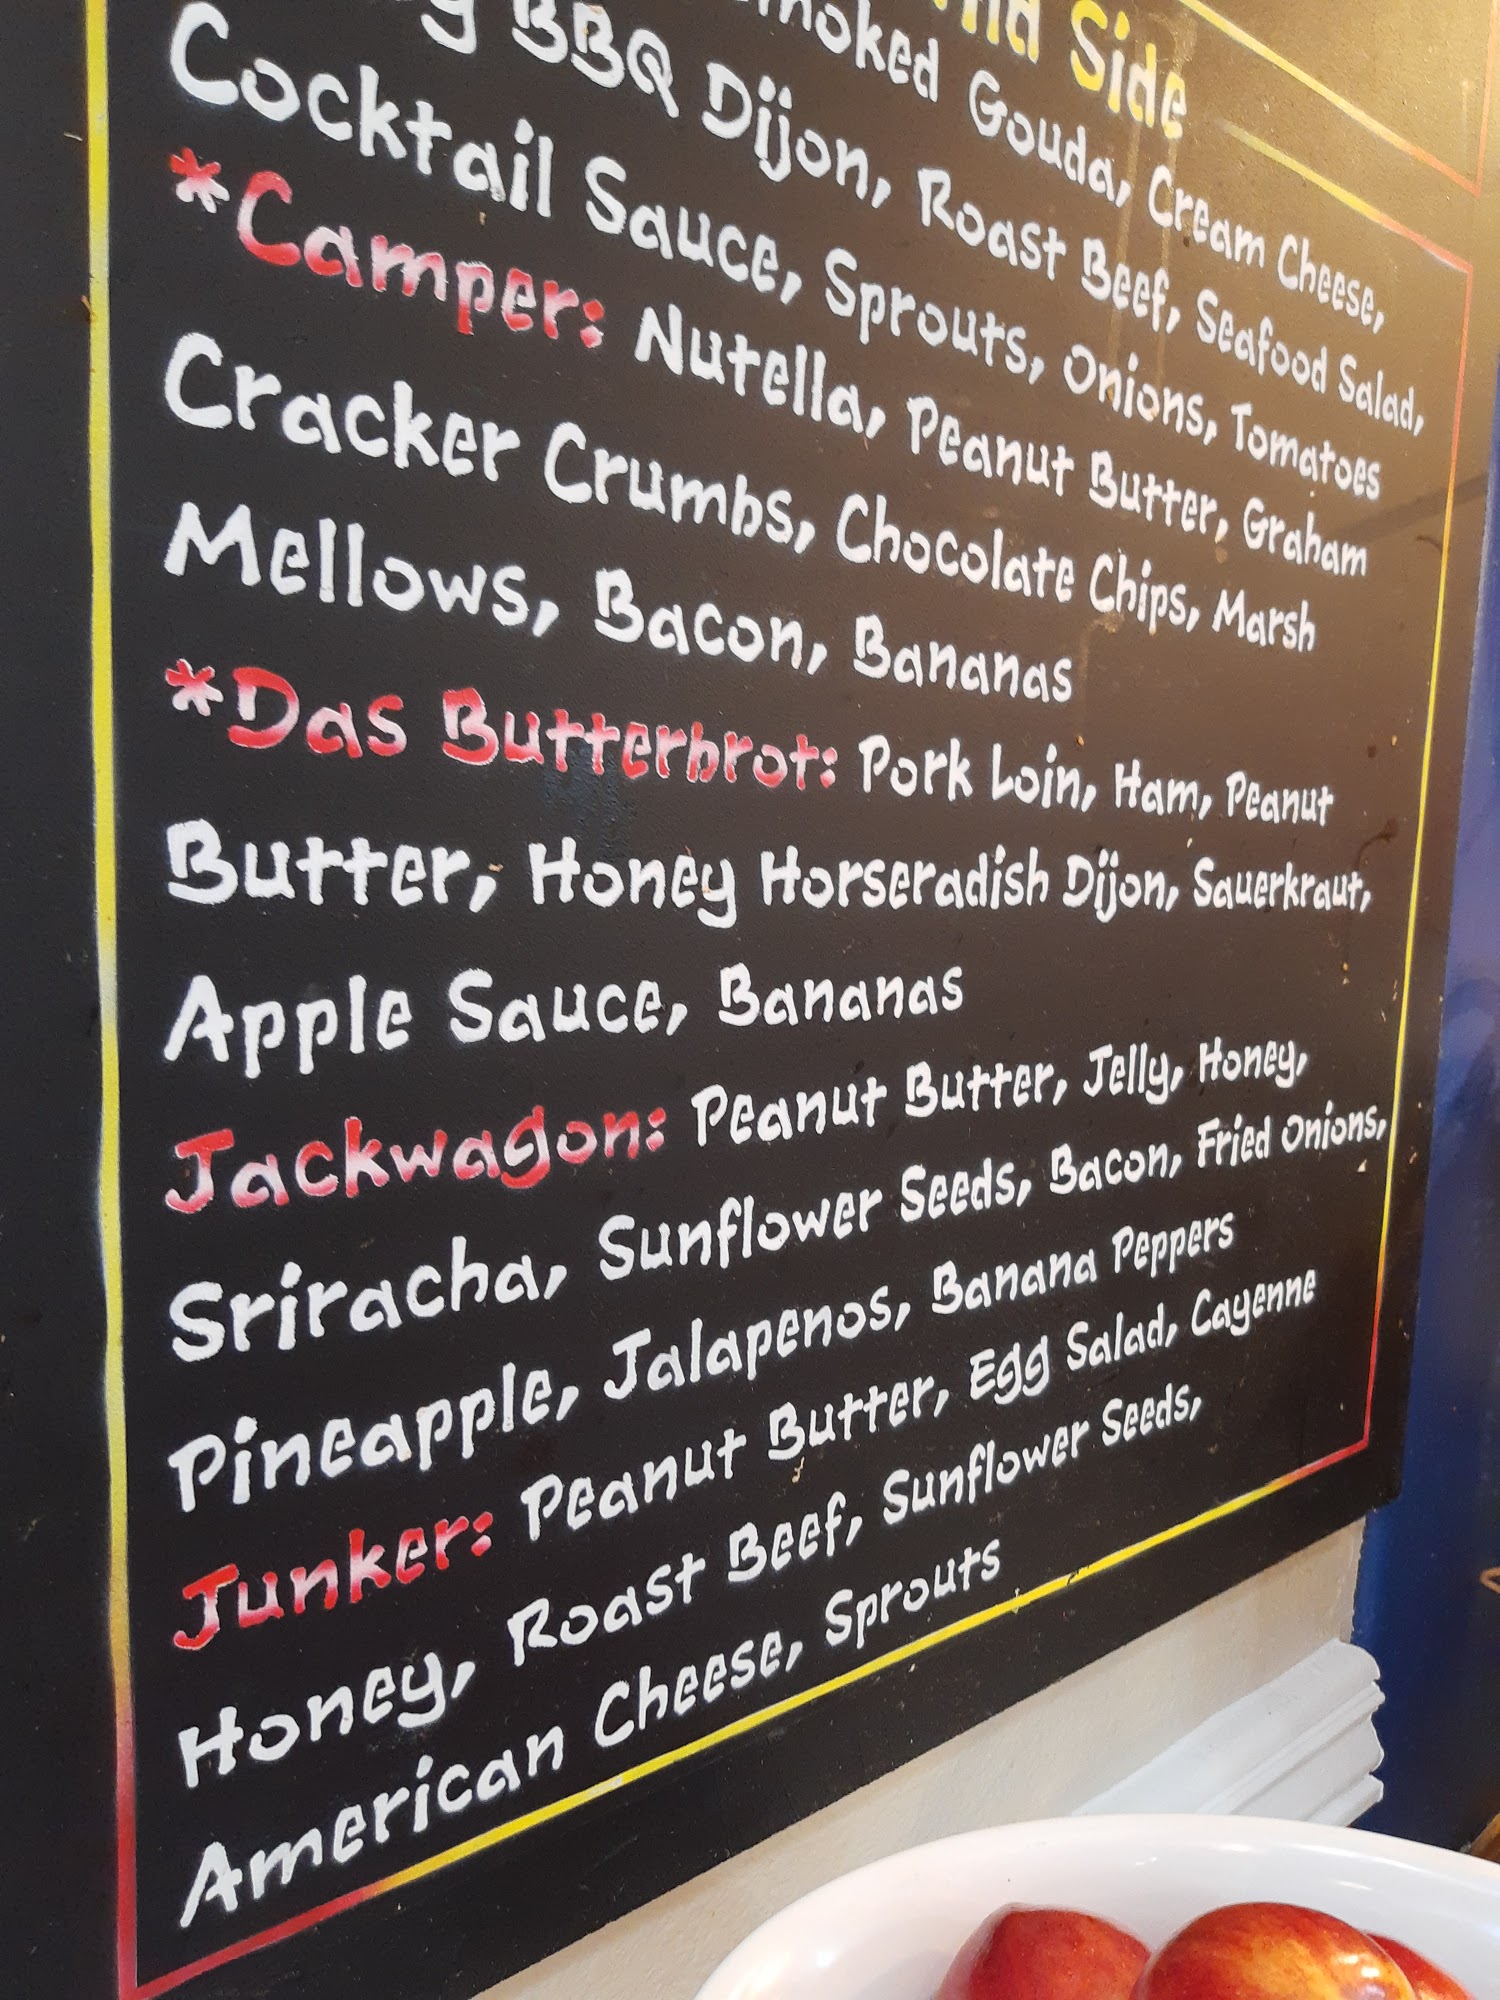 Side
Smoked Gouda, Cream Cheese,
BBQ Dijon, Roast Beef, Seafood Salad,
Cocktail Sauce, Sprouts, Onions, Tomatoes
*Camper: Nutella, Peanut Butter, Graham
Cracker Crumbs, Chocolate Chips, Marsh
Mellows, Bacon, Bananas
*Das Butterbrot: Pork Loin, Ham, Peanut
Butter, Honey Horseradish Dijon, Sauerkraut,
Apple Sauce, Bananas
Jackwagon: Peanut Butter, Jelly, Honey,
Sriracha, Sunflower Seeds, Bacon, Fried Onions,
Pineapple, Jalapenos, Banana Peppers
Junker: Peanut Butter, Egg Salad, Cayenne
Honey, Roast Beef, Sunflower Seeds,
American Cheese, Sprouts